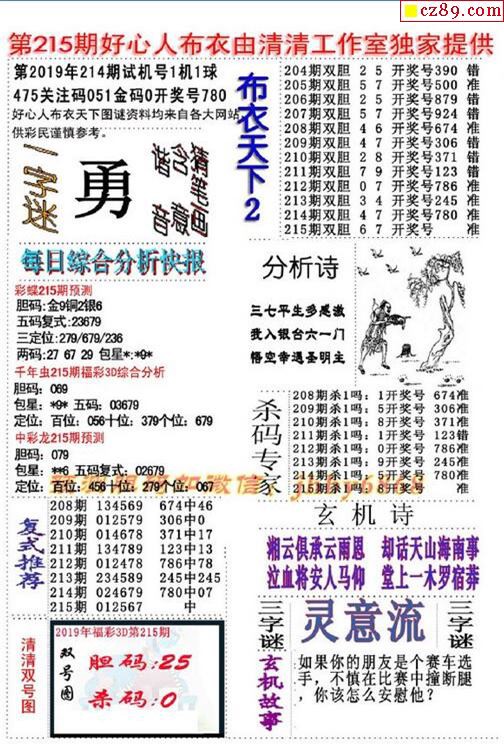 cz89.com
第215期好心人布衣由清清工作室独家提供
第2019年214期试机号1机1球
475关注码051金码0开奖号780
好心人布衣天下图谜资料均来自各大网站
供彩民谨慎参考。
一字迷
勇
猜笔画
含意
谐音
布衣天下2
204期双胆 2 5 开奖号390 错
205期双胆 5 7 开奖号500 准
206期双胆 2 5 开奖号879 错
207期双胆 5 7 开奖号924 错
208期双胆 4 6 开奖号674 准
209期双胆 4 7 开奖号306 错
210期双胆 2 8 开奖号371 错
211期双胆 7 9 开奖号123 错
212期双胆 0 7 开奖号786 准
213期双胆 3 4 开奖号245 准
214期双胆 4 7 开奖号780 准
215期双胆 6 7 开奖号 准
每日综合分析快报
彩蝶215期预测
胆码:金9铜2银6
五码复式:23679
三定位:279/679/236
两码:27 67 29 包星*:*9*
千年虫215期福彩3D综合分析
胆码: 069
包星: *9* 五码: 03679
定位: 百位: 056十位: 379个位: 679
中彩龙215期预测
胆码: 079
包星: **6 五码复式: 02679
定位: 百位: 456十位: 279个位: 067
分析诗
三七平生多感激
我入银台六一门
悟空幸遇圣明主
杀码专家
208期杀1吗: 1开奖号 674准
209期杀1吗: 5开奖号 306准
210期杀1吗: 8开奖号 371准
211期杀1吗: 1开奖号 123错
212期杀1吗: 0开奖号 786准
213期杀1吗: 9开奖号 245准
214期杀1吗: 5开奖号 780准
215期杀1吗: 8开奖号 准
复式推荐
208期 134569 674中46
209期 012579 306中0
210期 014678 371中17
211期 134789 123中13
212期 012478 786中78
213期 234589 245中245
214期 024679 780中07
215期 012567 中
玄机诗
湘云俱承云雨恩 却话天山海南事
泣血将安人马仰 堂上一木罗宿莽
三字谜
灵意流
三字谜
清清双号图
2019年福彩3D第215期
双号图
胆码:25
杀码:0
玄机故事
如果你的朋友是个赛车选
手，不慎在比赛中撞断腿
，你该怎么安慰他？